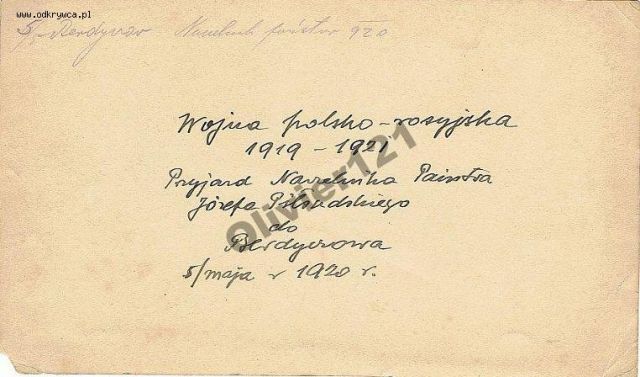 www.odkrywca.pl
5/ Berdyczów Naczelnik państwa 920
Wojna polsko-rosyjska
1919 - 1921
Przyjazd Naczelnika Państwa
Józefa Piłsudskiego
do
Berdyczowa
5/maja r 1920 r.
Olivier121